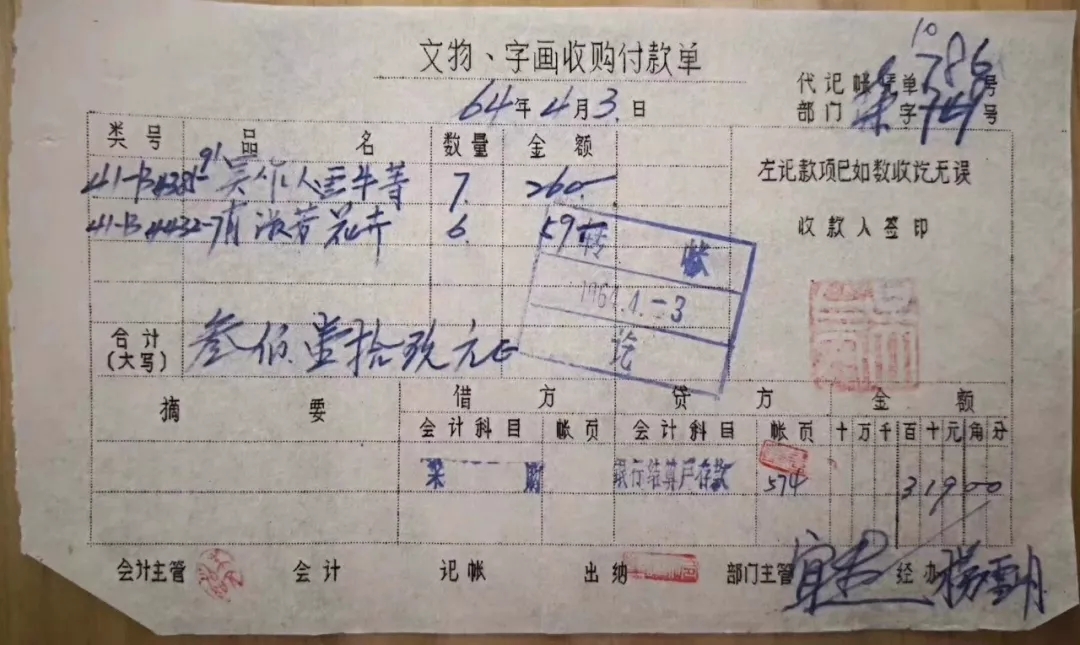 文物、字画收购付款单
10
代记帐凭单786号
64年4月3日
部门 字 号
类号 品名 数量 金额
41-B4385-91 吴作人 牛等 7. 260-
41-B4432-7 花卉 6. 59-
左记款项已如数收讫无误
收款人签印
转帐
1964.4.-3
讫
合计
(大写) 叁佰壹拾玖元正
摘要 借方 贷方 金额
会计科目 帐页 会计科目 帐页 十万千百十元角分
采购 银行结算户存款 574 319 00
会计主管 会计 记帐 出纳 部门主管 经办